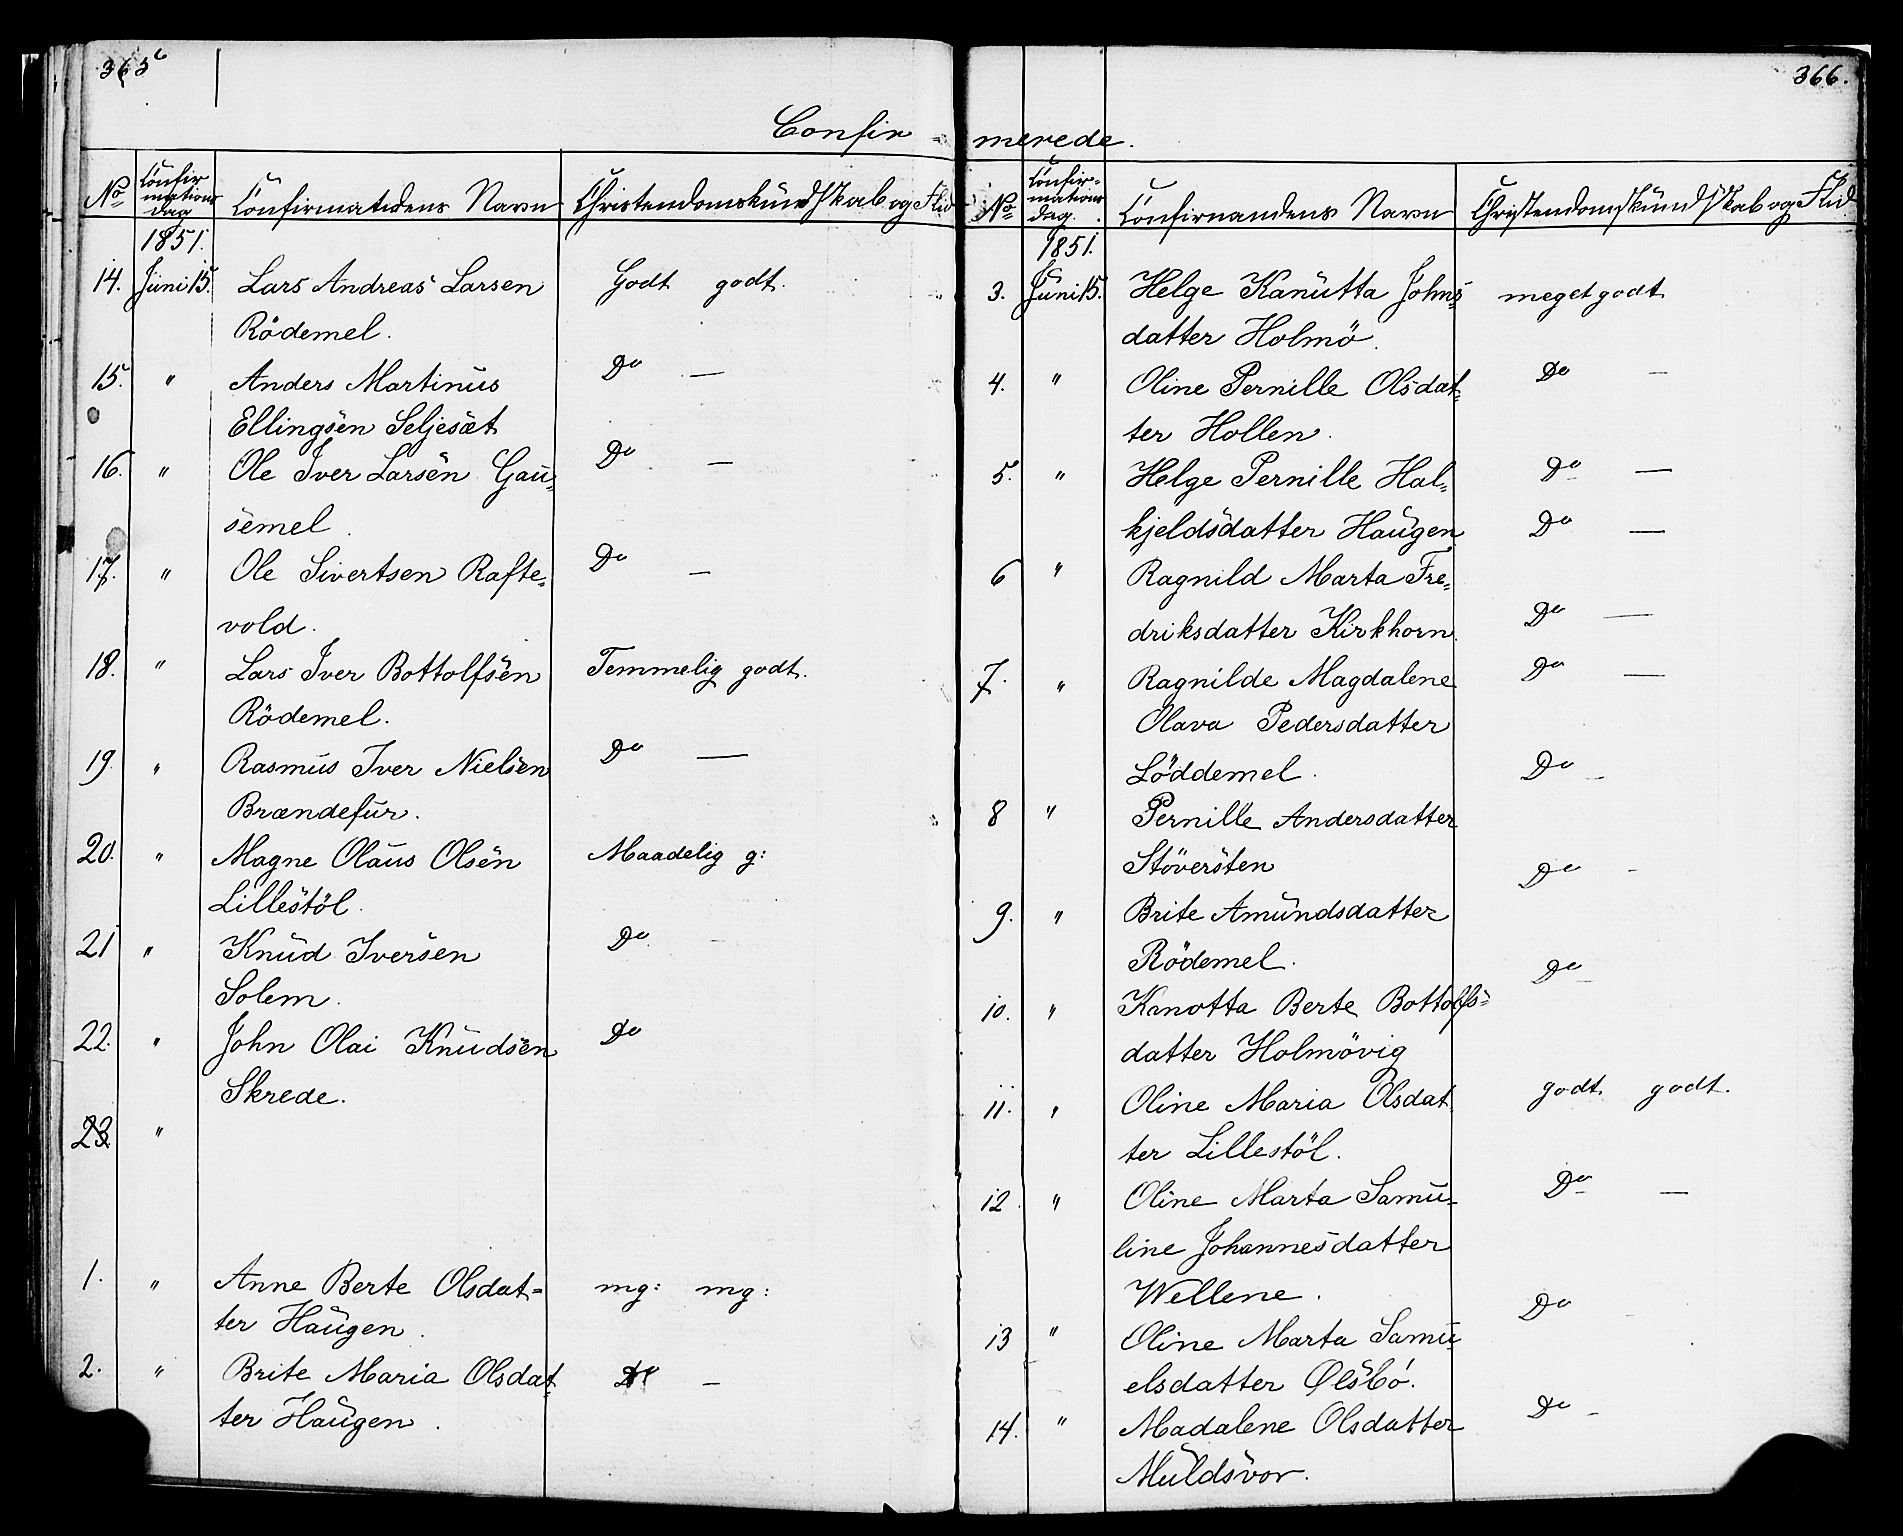 365
Confir-
No Confir mations dag Confirmandens Navn Christendomskundskab og Flid
1851.
14. Juni 15. Lars Andreas Larsen Godt godt.
Rödemel.
15. " Anders Martinus Do —
Ellingsen Seljesæt
16. " Ole Iver Larsen Gau- Do —
semel.
17. " Ole Sivertsen Rafte- Do —
vold.
18. " Lars Iver Bottolfsen Temmelig godt.
Rödemel.
19. " Rasmus Iver Nielsen Do —
Brændefur.
20. " Magne Olaus Olsen Maadelig g:
Lillestöl.
21 " Knud Iversen Do. -
Solem.
22. " John Olai Knudsen Do
Skrede.
23. "
1. " Anne Berte Olsdat- mg: mg:
ter Haugen.
2. " Brite Maria Olsdat- Do —
ter Haugen.
366.
merede.
No Confir- mations dag. Confirmandens Navn Christendomskundskab og Flid
1851.
3. Juni 15. Helge Kanutta Johns- meget godt
datter Holmö.
4. " Oline Pernille Olsdat- Do —
ter Hollen.
5. " Helge Pernille Hal- Do —
kjeldsdatter Haugen Do —
6 " Ragnild Marta Fre-
driksdatter Kirkhorn. Do —
7. " Ragnilde Magdalene Do —
Olava Pedersdatter
Löddemel. Do -
8 " Pernille Andersdatter
Störersten Do -
9. " Brite Amundsdatter
Rödemel. Do -
10. " Knotta Berte Bottolfs-
datter Holmövig
11. " Oline Maria Olsdat godt. godt.
ter Lillestöl.
12. " Oline Marta Samu- Do —
line Johannesdatter
Wellene. Do -
13 " Oline Marta Samu-
elsdatter Ølsbö.
14. " Madalene Olsdatter Do -
Muldsvor.